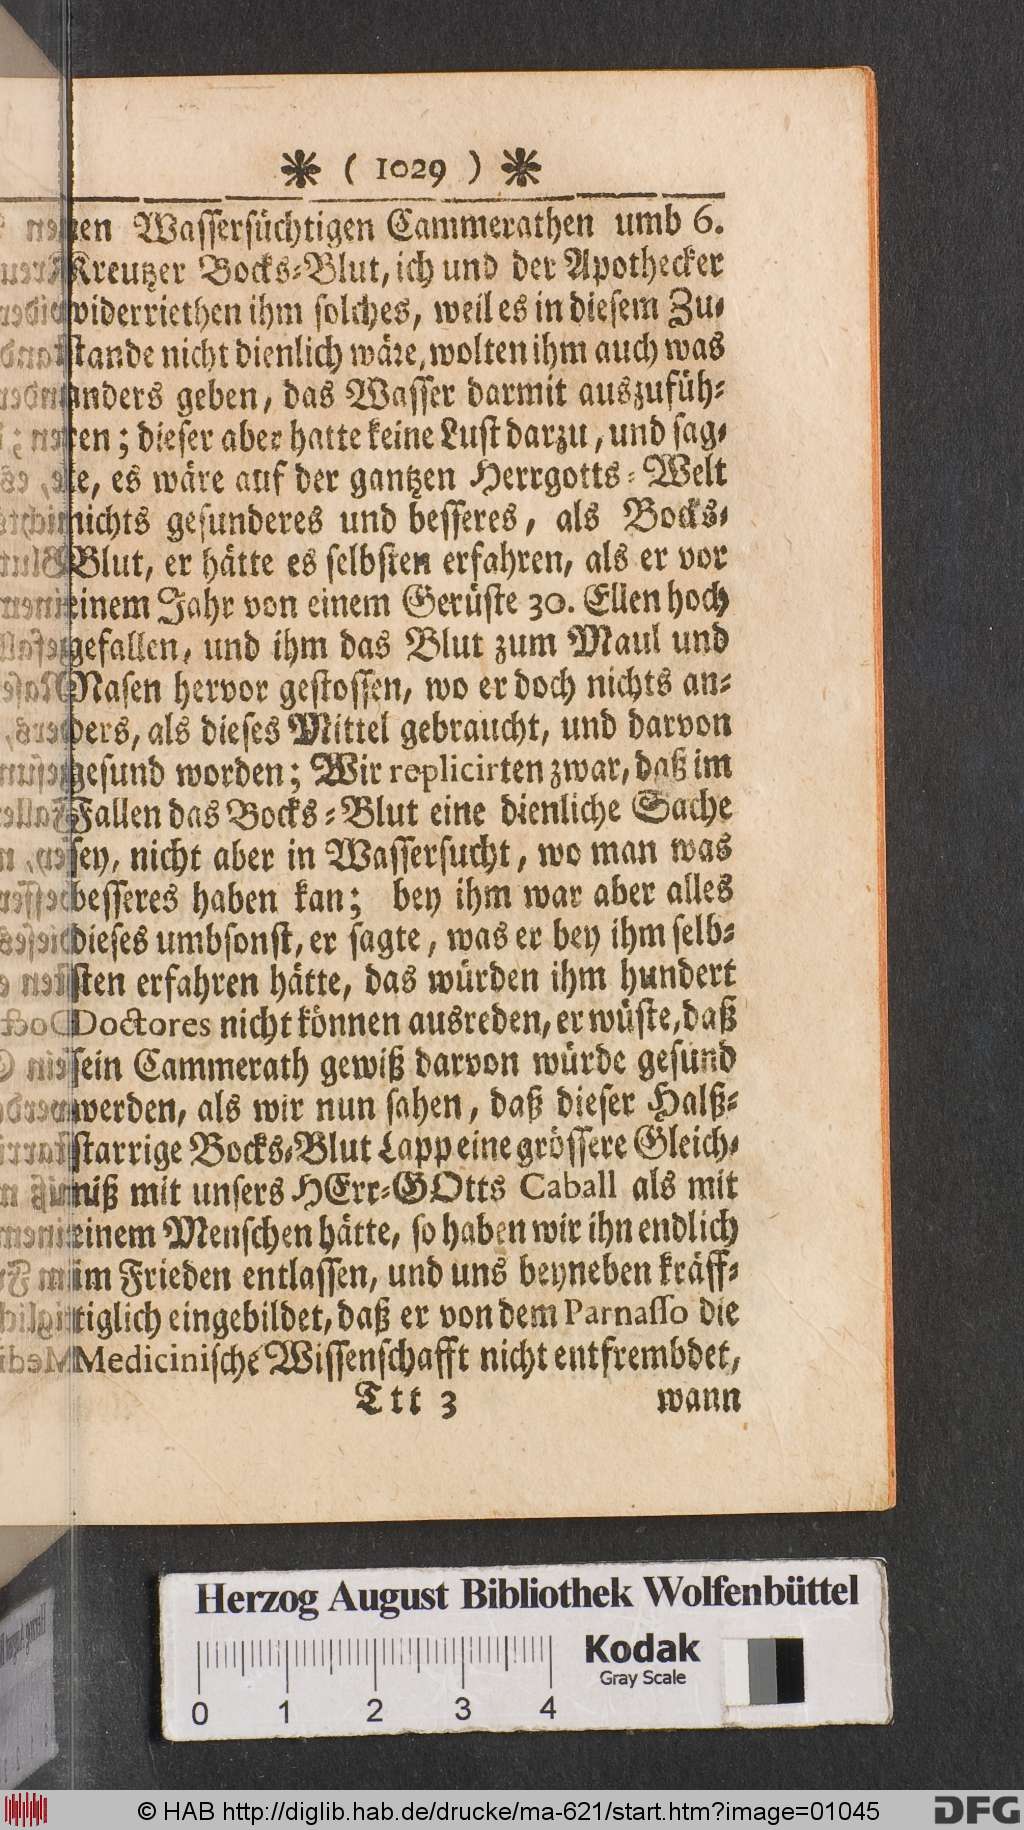 ❋ ( 1029 ) ❋
nen Wassersüchtigen Cammerathen umb 6.
Kreutzer Bocks-Blut, ich und der Apothecker
widerriethen ihm solches, weil es in diesem Zu-
stande nicht dienlich wäre, wolten ihm auch was
anders geben, das Wasser darmit auszufüh-
ren; dieser aber hatte keine Lust darzu, und sag-
te, es wäre auf der gantzen Herrgotts-Welt
nichts gesunderes und besseres, als Bocks-
Blut, er hätte es selbsten erfahren, als er vor
einem Jahr von einem Gerüste 30. Ellen hoch
gefallen, und ihm das Blut zum Maul und
Nasen hervor gestossen, wo er doch nichts an-
ders, als dieses Mittel gebraucht, und darvon
gesund worden; Wir replicirten zwar, daß im
Fallen das Bocks-Blut eine dienliche Sache
sey, nicht aber in Wassersucht, wo man was
besseres haben kan; bey ihm war aber alles
dieses umbsonst, er sagte, was er bey ihm selb-
sten erfahren hätte, das würden ihm hundert
Doctores nicht können ausreden, er wüste, daß
sein Cammerath gewiß darvon würde gesund
werden, als wir nun sahen, daß dieser Halß-
starrige Bocks-Blut Lapp eine grössere Gleich-
niß mit unsers HErr-GOtts Caball als mit
einem Menschen hätte, so haben wir ihn endlich
im Frieden entlassen, und uns beyneben kräff-
tiglich eingebildet, daß er von dem Parnasso die
Medicinische Wissenschafft nicht entfrembdet,
Ttt 3 wann
Herzog August Bibliothek Wolfenbüttel
Kodak
Gray Scale
0 1 2 3 4
© HAB http://diglib.hab.de/drucke/ma-621/start.htm?image=01045
DFG